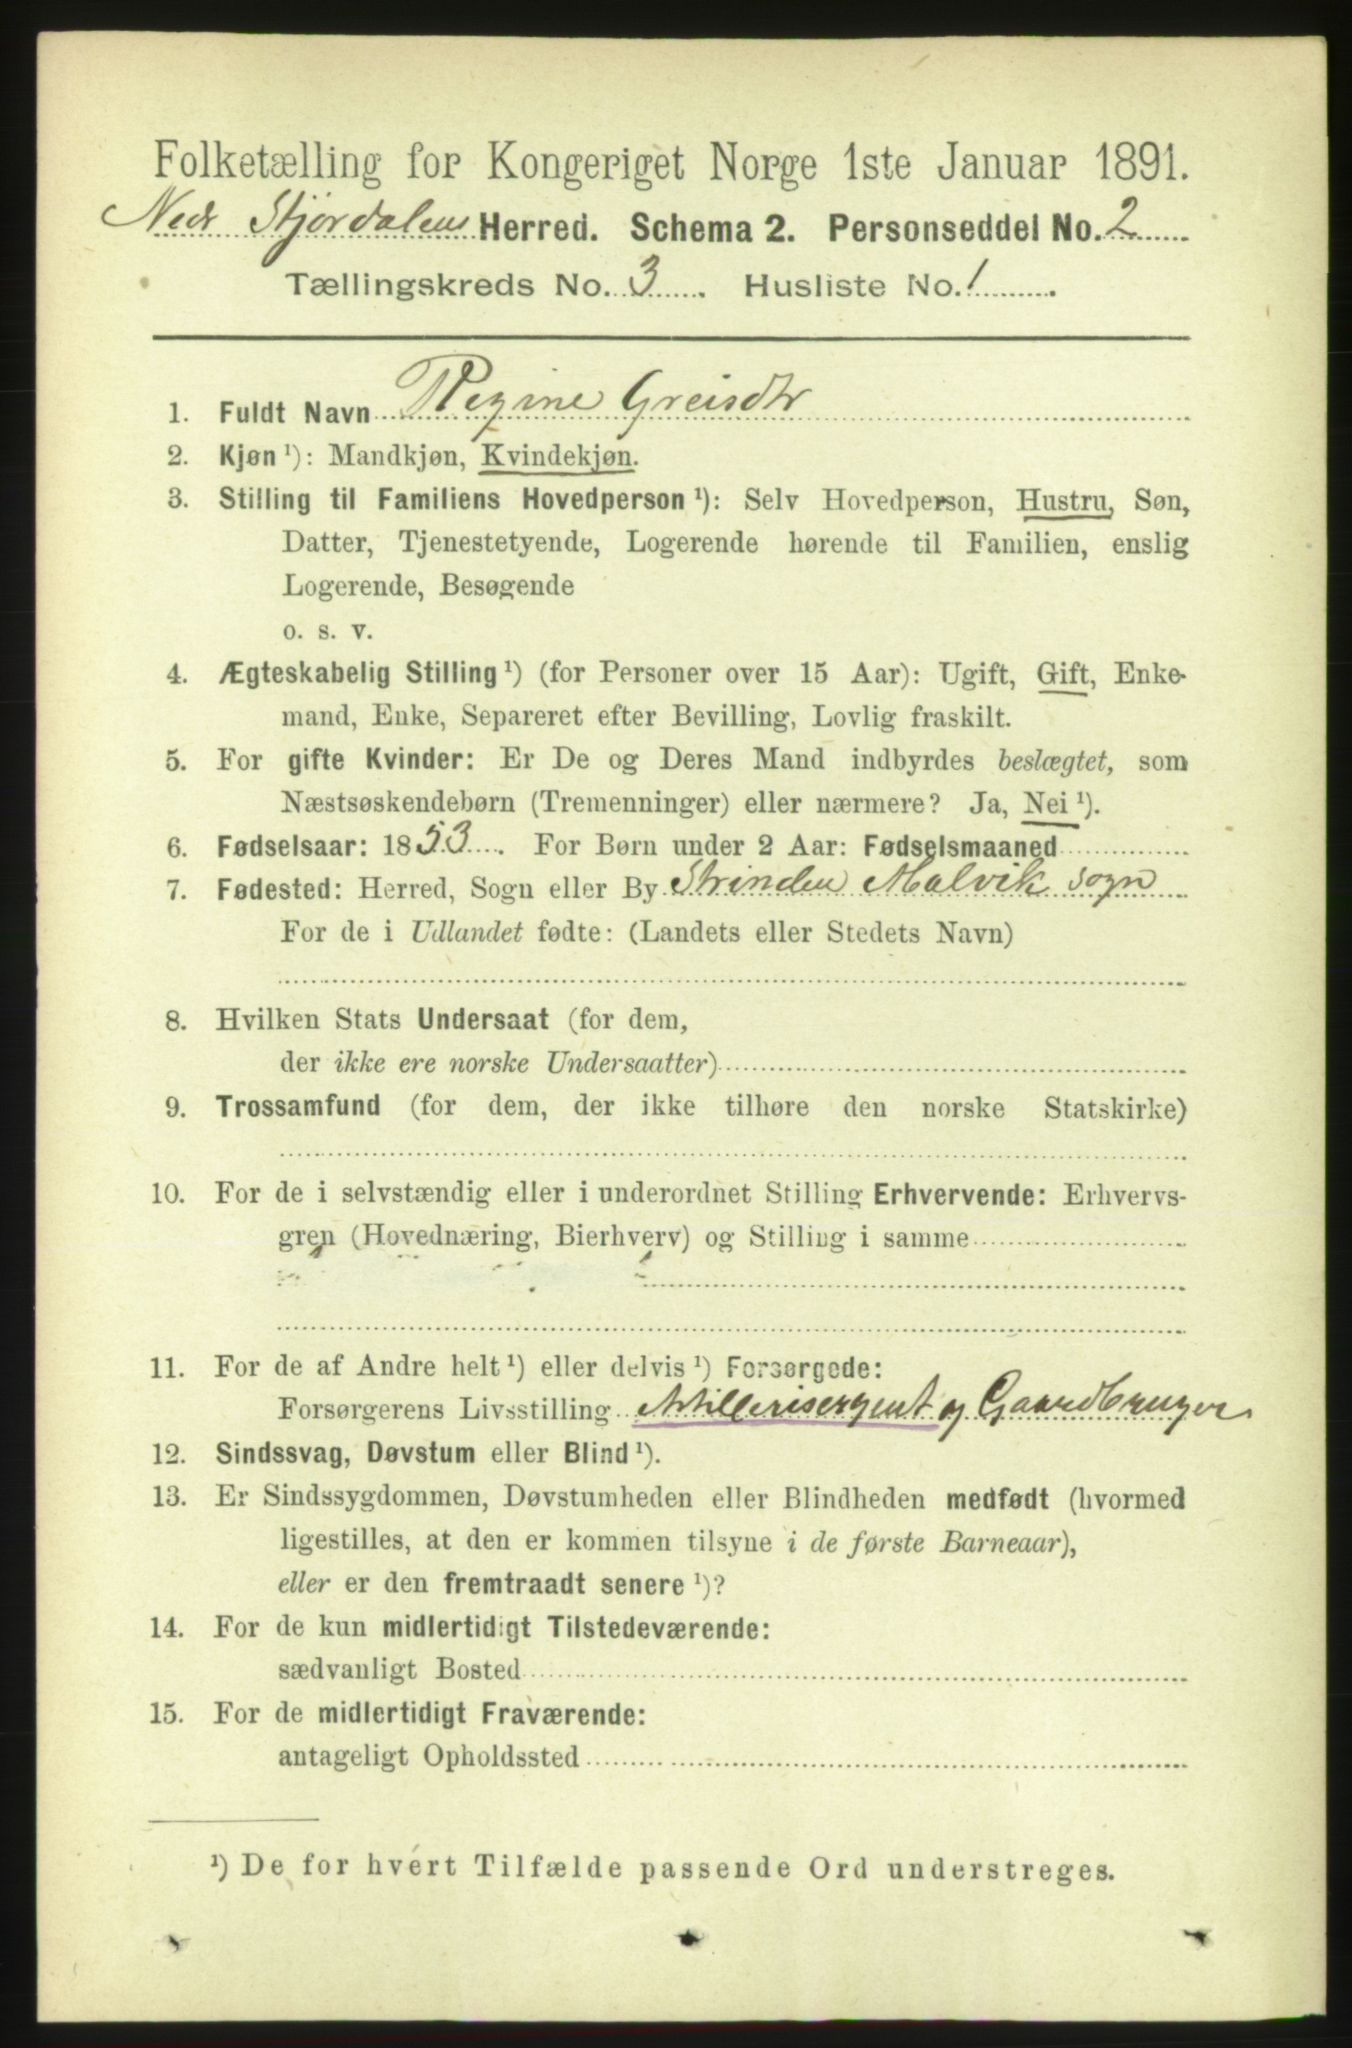 Folketælling for Kongeriget Norge 1ste Januar 1891.
Nedr Stjørdalens Herred. Schema 2. Personseddel No. 2
Tællingskreds No. 3. Husliste No. 1.
1. Fuldt Navn Regine Greisdtr
2. Kjøn ¹): Mandkjøn, Kvindekjøn.
3. Stilling til Familiens Hovedperson ¹): Selv Hovedperson, Hustru, Søn,
Datter, Tjenestetyende, Logerende hørende til Familien, enslig
Logerende, Besøgende
o. s. v.
4. Ægteskabelig Stilling ¹) (for Personer over 15 Aar): Ugift, Gift, Enke-
mand, Enke, Separeret efter Bevilling, Lovlig fraskilt.
5. For gifte Kvinder: Er De og Deres Mand indbyrdes beslægtet, som
Næstsøskendebørn (Tremenninger) eller nærmere? Ja, Nei ¹).
6. Fødselsaar: 1853. For Børn under 2 Aar: Fødselsmaaned
7. Fødested: Herred, Sogn eller By Strinden Malvik sogn
For de i Udlandet fødte: (Landets eller Stedets Navn)
8. Hvilken Stats Undersaat (for dem,
der ikke ere norske Undersaatter)
9. Trossamfund (for dem, der ikke tilhøre den norske Statskirke)
10. For de i selvstændig eller i underordnet Stilling Erhvervende: Erhvervs-
gren (Hovednæring, Bierhverv) og Stilling i samme
11. For de af Andre helt ¹) eller delvis ¹) Forsørgede:
Forsørgerens Livsstilling Artillerisergent og Gaardbruger
12. Sindssvag, Døvstum eller Blind ¹).
13. Er Sindssygdommen, Døvstumheden eller Blindheden medfødt (hvormed
ligestilles, at den er kommen tilsyne i de første Barneaar),
eller er den fremtraadt senere ¹)?
14. For de kun midlertidigt Tilstedeværende:
sædvanligt Bosted
15. For de midlertidigt Fraværende:
antageligt Opholdssted
¹) De for hvert Tilfælde passende Ord understreges.